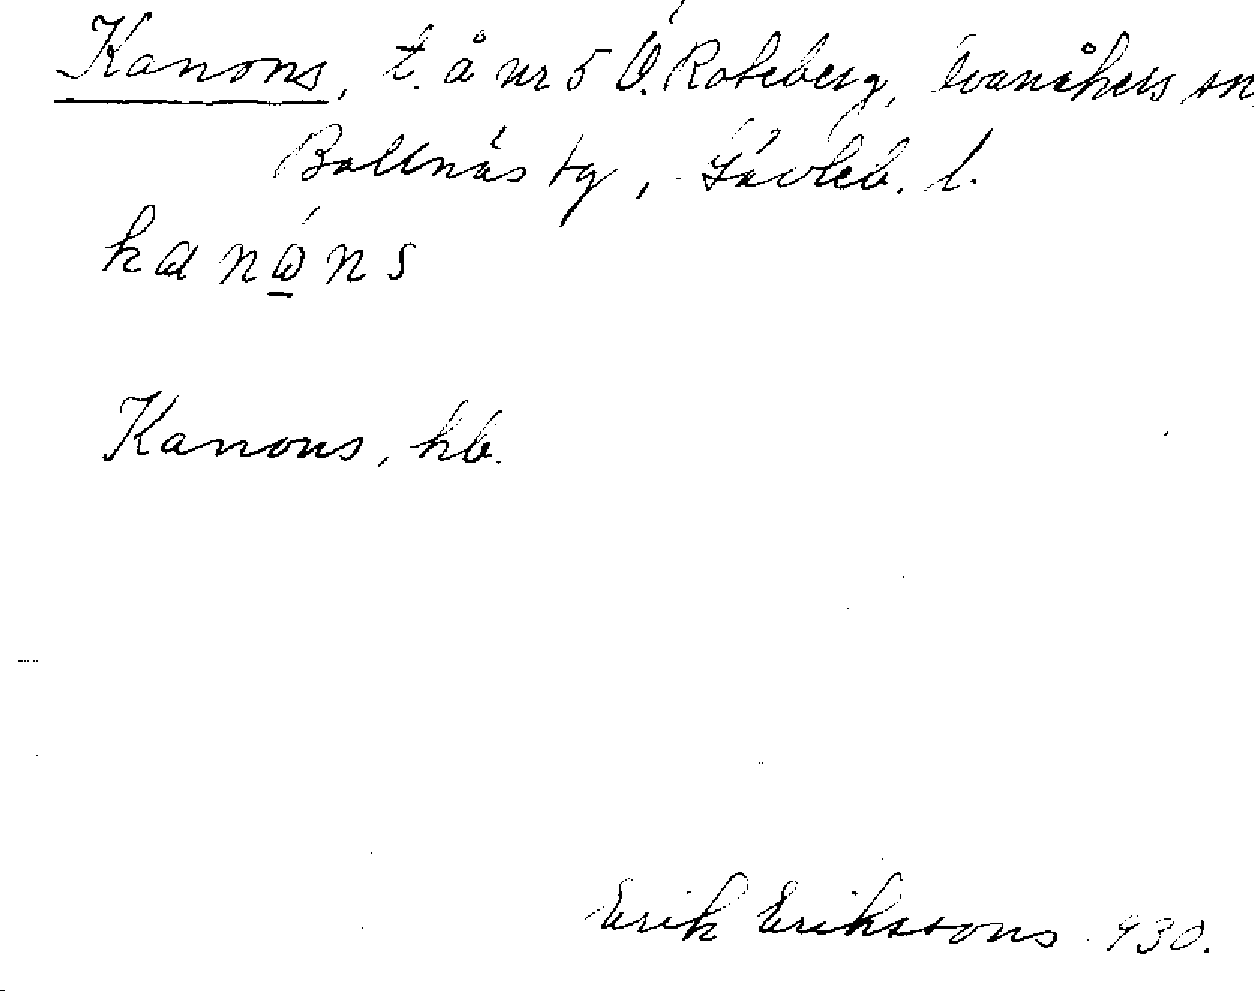 Kanons, t. å nr 5 Ö. Roteberg, Svanåhers sn,
Bollnäs tg, Gävleb. l.
kanóns
Kanons, hb.
Erik Eriksson 1930.